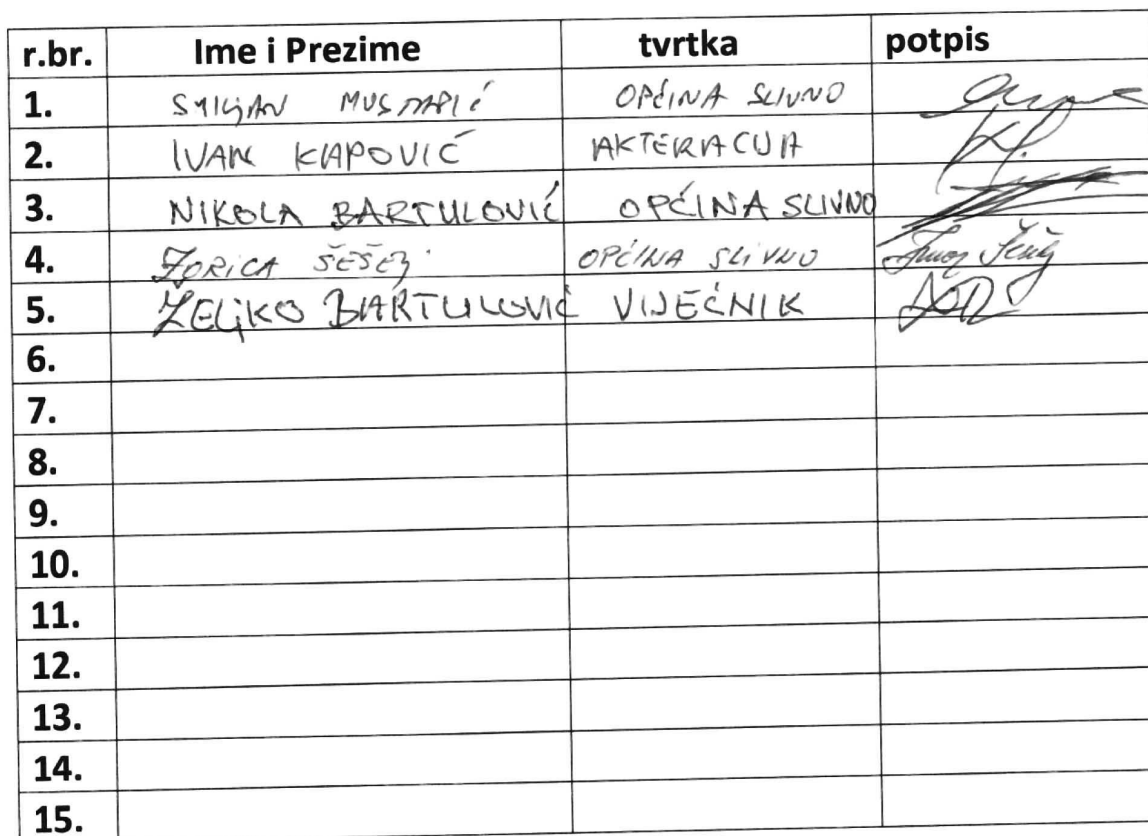 r.br. Ime i Prezime tvrtka potpis
1. SMILJAN MUSTAPIĆ OPĆINA SLIVNO
2. IVAN KAPOVIĆ
3. NIKOLA BARTULOVIĆ OPĆINA SLIVNO
4. ZORICA ŠEŠEJ OPĆINA SLIVNO
5. ŽELJKO BARTULOVIĆ VIJEĆNIK
6.
7.
8.
9.
10.
11.
12.
13.
14.
15.